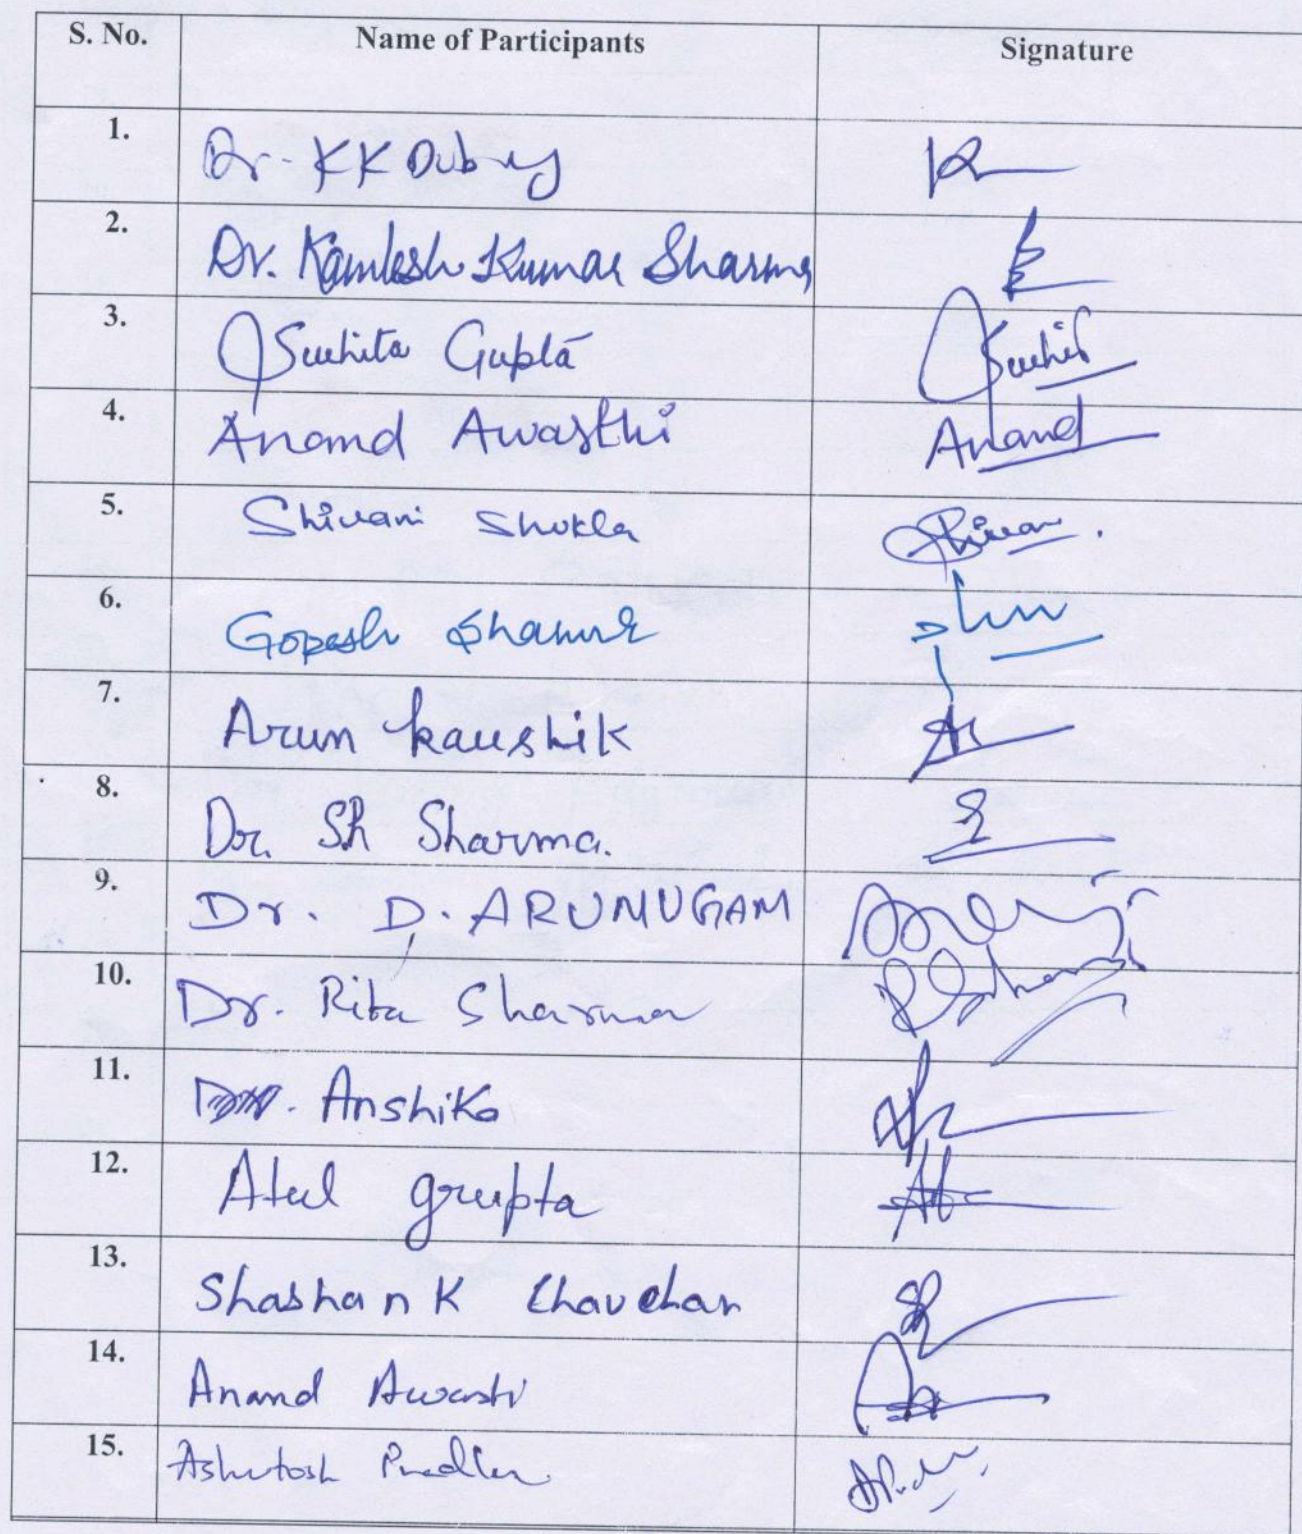 S. No. Name of Participants Signature
1. Dr. KK Dubey
2. Dr. Kamlesh Kumar Sharma
3. Suchita Gupta Suchit
4. Anand Awasthi Anand
5. Shivani Shukla Shivan.
6. Gopesh Sharma
7. Arun kaushik
8. Dr. SK Sharma.
9. Dr. D. ARUMUGAM
10. Dr. Rita Sharma RSharma
11. Anshika
12. Atul Gupta
13. Shashank Chauchan
14. Anand Awasti
15. Ashutosh